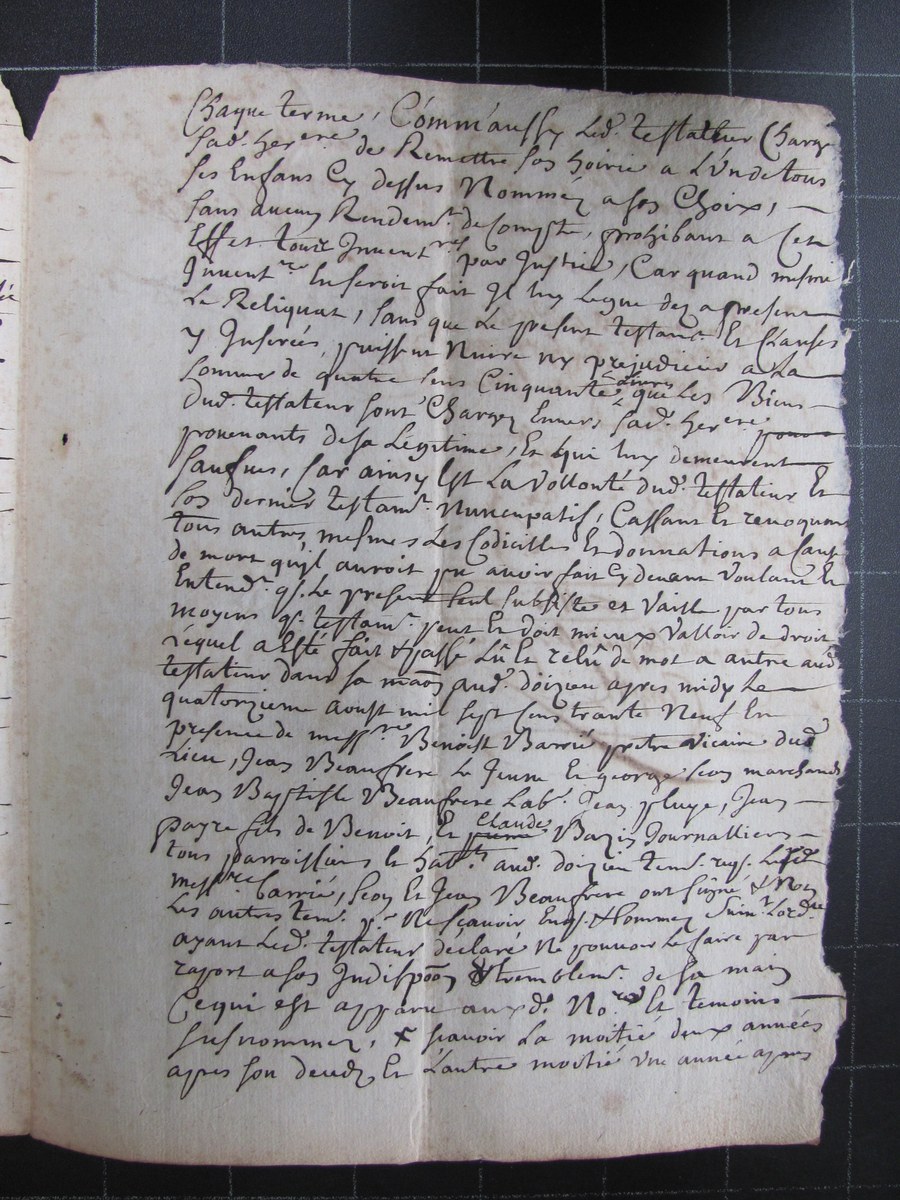 Chaque terme, Comm'aussy led. testateur Charge
sad. her.ere de Remettre son hoirie a L'Un de tous
ses Enfans Cy dessus Nomméz a son Choix, —
sans aucun Rendem.t de Compte, prohibant a Cet
Effet toute Invent.re par Justice, Car quand mesme
Invent.re En seroit fait Il luy Legue dez a present
Le Reliquat, sans que Le present testam.t Et Clauses
y Inserées, puissent Nuire ny prejudicier a La
somme de quatre sens Cinquante livres que Les Biens —
dud. testateur sont Chargez Envers sad. her.ere
provenants de sa Légitime, Et qui luy demeurent —
saufves, Car ainsy Est La Vollonté dud. testateur Et
son dernier testam.t Nuncupatif, Cassant Et revoquant
tous autres, mesmes Les Codicilles Et donnations a Cause
de mort qu'il auroit pu avoir fait Cy devant Voulant Et
Entend.t q. Le present seul subsiste et Vaille par tous
moyens q. testam.t peut Et doit mieux Valloir de droit
Lequel a Esté fait & passé Lû Et relû de mot a autre aud.
testateur dans sa maõn aud. doizieu apres midy Le —
quatorzieme aoust mil sept Cens trante Neuf En
presence de mess.re Benoist Barrié pretre vicaire dud.
Lieu, Jean Beaufrere Le Jeune Et george seon marchands
Jean Baptiste Beaufrere Lab.r Jean pluye, Jean —
payre fils de Benoit, Et Claude Bazin Journalliers —
tous parroissiens Et hab.ts aud. doizieu tem. req. Led.
mess.re barrié, seon Et Jean Beaufrere ont signé & Non
Les autres tem. p.r Ne sçavoir Enq. & sommez suiv.t Lord.re
ayant Led. testateur déclaré Ne pouvoir Le faire par
raport a son Indispoõn & tremblem.t de sa main
Ce qui est apparu aux d. No.res Et temoins —
susnommez, x sçavoir La moitié deux années
apres son decedz Et L'autre moitié une année apres